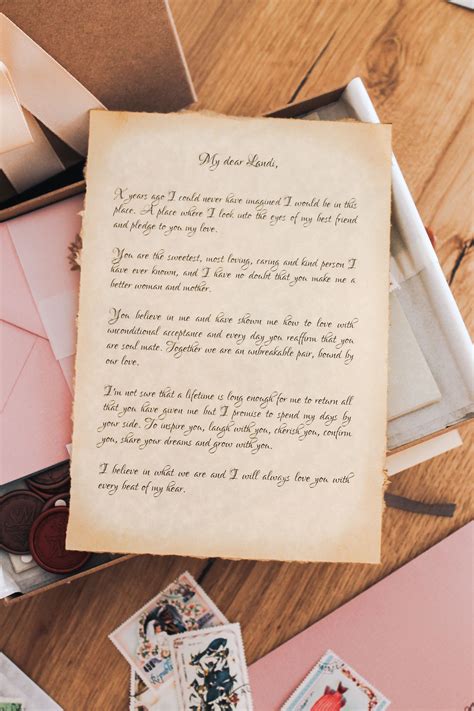 My dear Landi,
X years ago I could never have imagined I would be in this
place. A place where I look into the eyes of my best friend
and pledge to you my love.
You are the sweetest, most loving, caring and kind person I
have ever known, and I have no doubt that you make me a
better woman and mother.
You believe in me and have shown me how to love with
unconditional acceptance and every day you reaffirm that you
are soul mate. Together we are an unbreakable pair, bound by
our love.
I'm not sure that a lifetime is long enough for me to return all
that you have given me but I promise to spend my days by
your side. To inspire you, laugh with you, cherish you, confirm
you, share your dreams and grow with you.
I believe in what we are and I will always love you with
every beat of my hear.